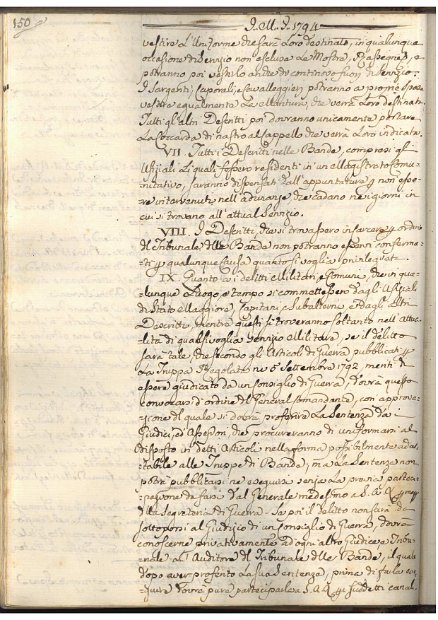 150
J. M. J. 1794
vestire l'Uniforme che sarà Loro destinato, in qualunque
occasione di Servizio non esclusa la Mostra, Rassegne, e
potranno poi vestirlo anche di continuo fuori di Servizio.
I Sargenti, Caporali, e Cavalleggieri potranno a proprie spese
vestire egualmente la che verrà Loro destinata.
Tutti gli altri Descritti poi dovranno unicamente portare
la Coccarda di nastro al Cappello che verrà Loro indicata.
VII. Tutti i Descritti nelle Bande, compresi gli
Ufiziali, i quali fossero residenti in un Magistrato Comu-
nitativo, saranno dispensati dall'appuntatura p non esse-
re intervenuti nell'adunanze che cadano nei giorni in
cui si trovano all'attual Servizio.
VIII. I Descritti che si trovassero in carcere p ordine
del Tribunale delle Bande non potranno esservi conserma-
ti p qualunque Causa quantosivoglia privilegiata.
IX. Quanto ai i delitti Militari, e Comuni, che in qua-
lunque Luogo, e tempo si commettessero dagli Ufiziali
di Stato Maggiore, Capitani, e Subalterni, e dagli Altri
Descritti, mentre questi si troveranno soltanto nell'Attua-
lità di qualsivoglia Servizio Militare, se il delitto
sarà tale, che secondo gli Articoli di Guerra pubblicati p
la Truppa Regolata ne' 6 Settembre 1792. meriti di
essere giudicato da un Consiglio di Guerra, dovrà questo
convocarsi d'ordine del General Comandante, con approva-
zione di quale si dovrà proferire la Sentenza da i
Giudici ed Assessori, che procureranno di uniformarsi al
disposto in detti Articoli nella forma possibilmente adat-
tabile alle Truppe di Banda, ma la Sentenza non
potrà pubblicarsi nè eseguirsi senza la previa parteci-
pazione da farsi dal Generale medesimo a S. A. R. p mezzo
della Segreteria di Guerra - Se poi il delitto non sarà da
sottoporsi al Giudizio di un Consiglio di Guerra, dovrà
conoscerne privativamente ad ogni altro Giudice e Tribu-
nale l'Auditore del Tribunale delle Bande, il quale
dopo aver proferito la sua Sentenza, prima di farla ese-
guire dovrà pure parteciparla a S. A. R. p i suddetti canal.